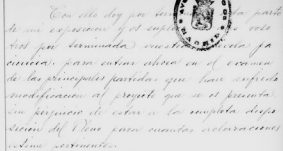 Con ello doy por terminada la parte
de mi exposición y os suplico a voso
tros por terminada vuestra benévola pa
ciencia, para entrar ahora en el examen
de las principales partidas que han sufrido
modificación al proyecto que a os presenta
sin perjuicio de estar a la completa dispo
sición del Pleno para cuantas aclaraciones
estime pertinentes.
MADRID